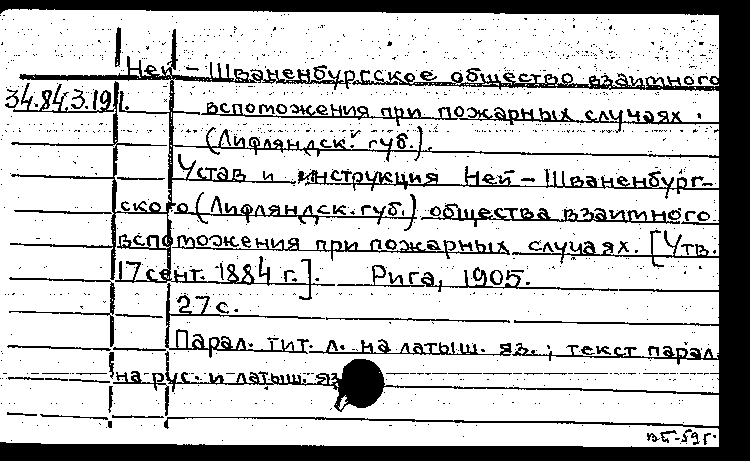 Ней-Шваненбургское общество взаимного
34.84.3.191. вспоможения при пожарных случаях.
(Лифляндск. губ.).
Устав и инструкция Ней-Шваненбург-
ского (Лифляндск. губ.) общества взаимного
вспоможения при пожарных случаях. [Утв.
17 сент. 1884 г.]. Рига, 1905.
27 с.
Парал. тит. л. на латыш. яз.; текст парал.
на рус. и латыш. яз